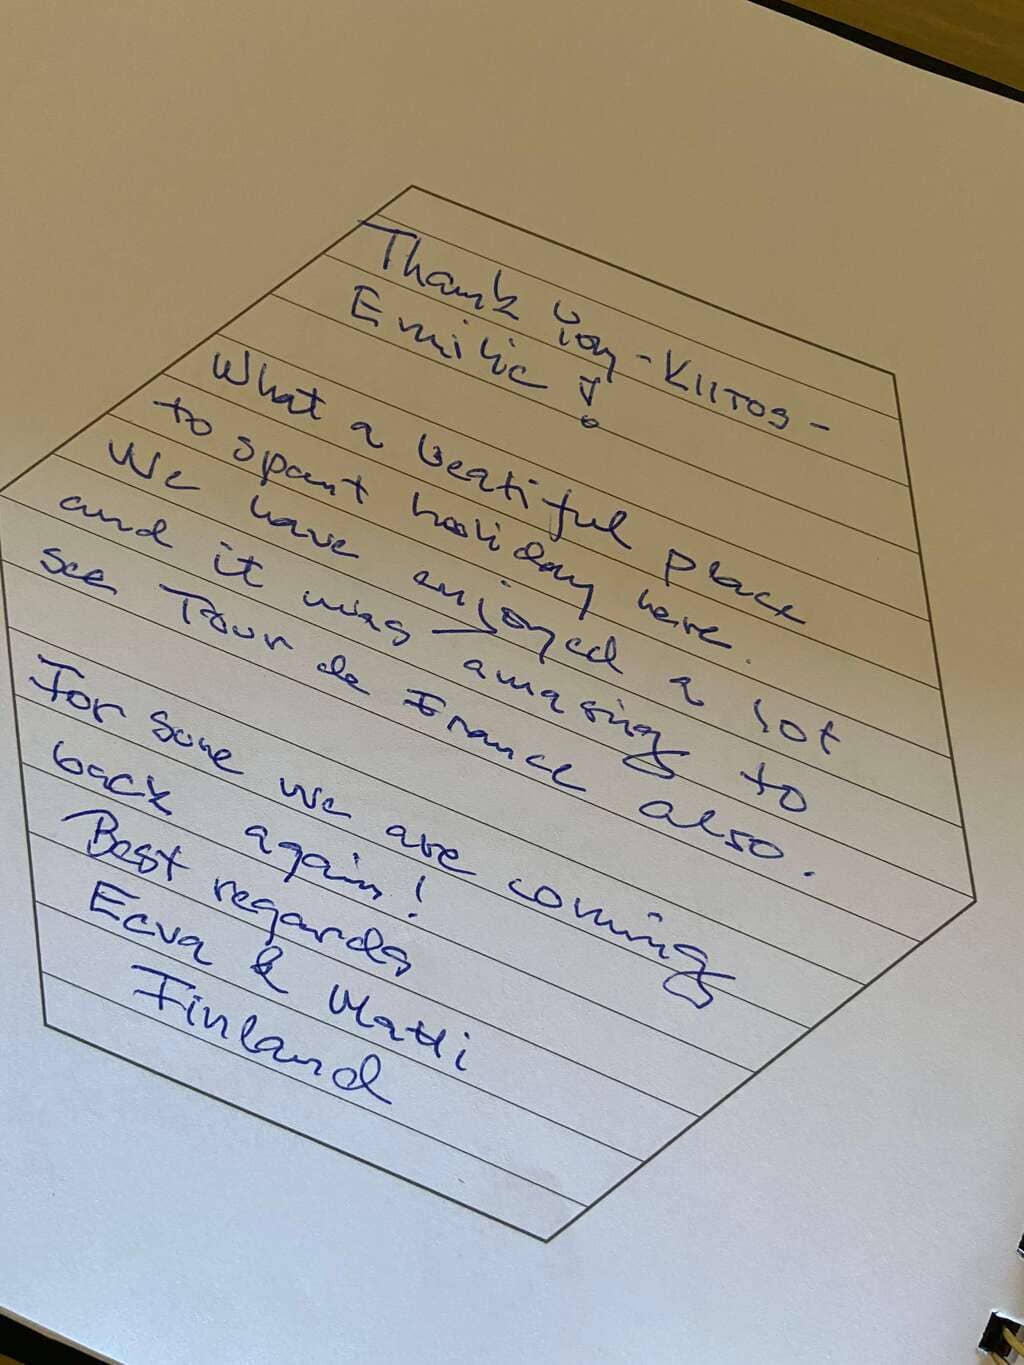 Thank you - KIITOS -
Emilie !
What a beatiful place
to spent holiday here.
We have enjoyed a lot
and it was amazing to
see Tour de France also.
For sure we are coming
back again!
Best regards
Eeva & Matti
Finland